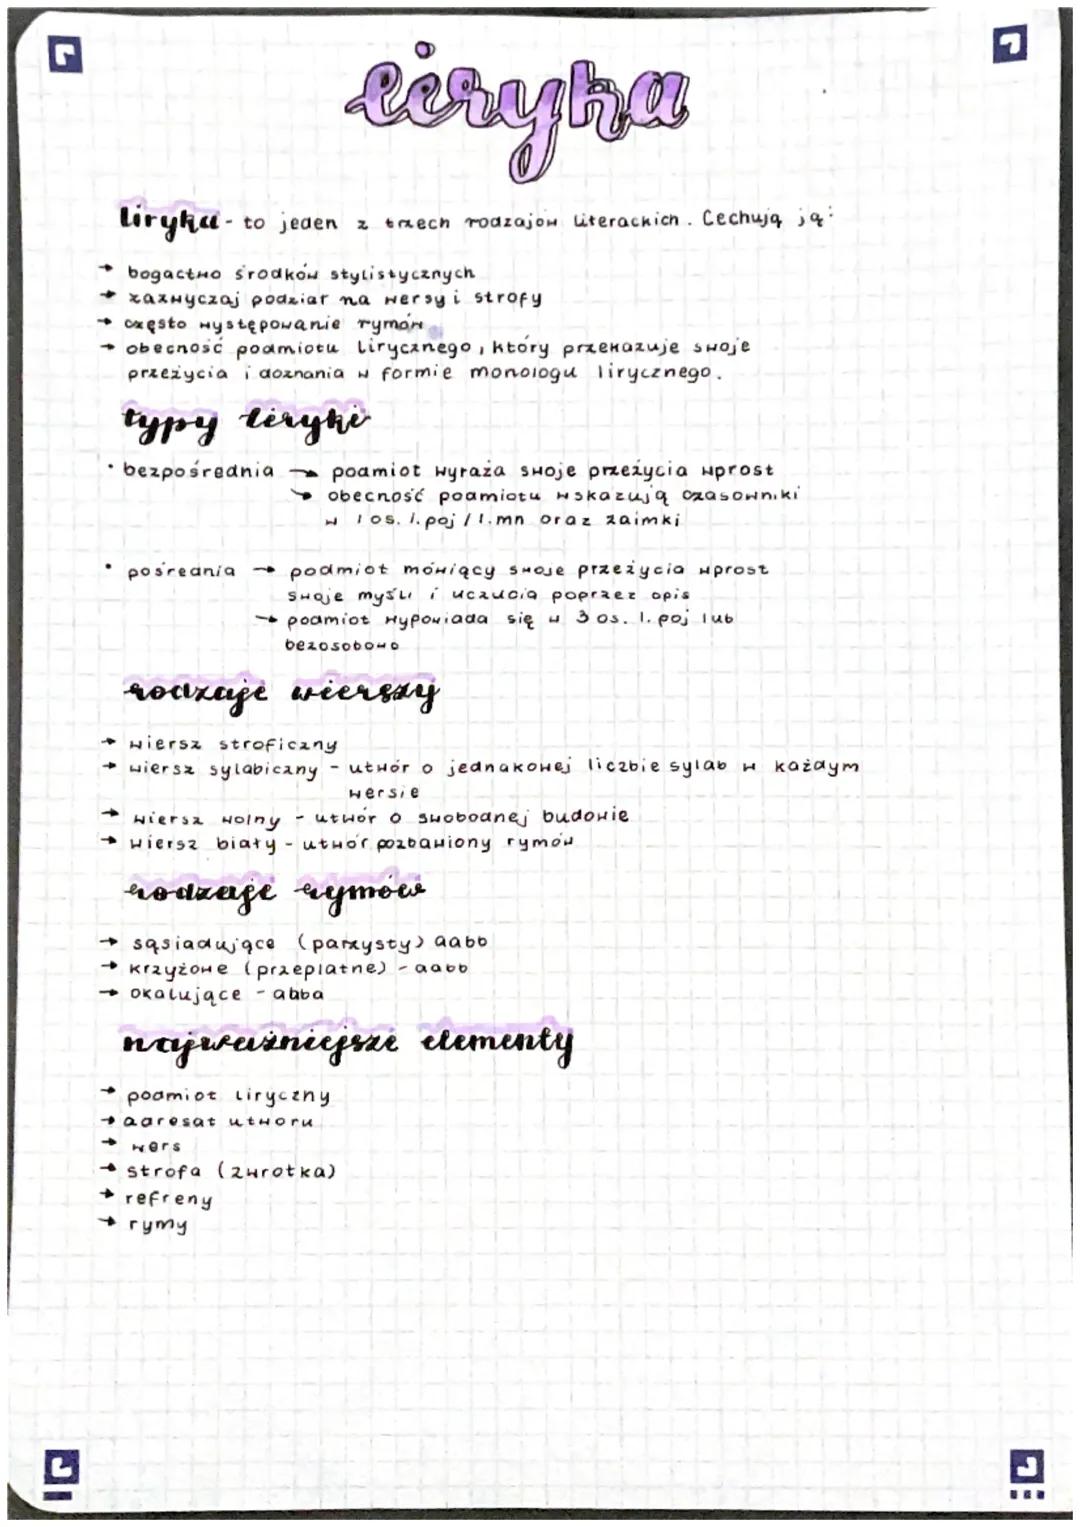 liryka
liryka - to jeden z trzech rodzajów literackich. Cechują ją:
→ bogactwo środków stylistycznych
→ zazwyczaj podział na wersy i strofy
→ często występowanie rymów
→ obecność podmiotu lirycznego, który przekazuje swoje
przeżycia i doznania w formie monologu lirycznego.
typy liryki
• bezpośrednia → podmiot wyraża swoje przeżycia wprost
→ obecność podmiotu wskazują czasowniki
w 1 os. l. poj / l. mn oraz zaimki
• pośrednia → podmiot mówiący swoje przeżycia wprost
swoje myśli i uczucia poprzez opis
→ podmiot wypowiada się w 3 os. l. poj lub
bezosobowo
rodzaje wierszy
→ wiersz stroficzny
→ wiersz sylabiczny - utwór o jednakowej liczbie sylab w każdym
wersie
→ wiersz wolny - utwór o swobodnej budowie
→ wiersz biały - utwór pozbawiony rymów
rodzaje rymów
→ sąsiadujące (parzysty) aabb
→ krzyżowe (przeplatne) - aabb
→ okalujące - abba
najważniejsze elementy
→ podmiot liryczny
→ adresat utworu
→ wers
→ strofa (zwrotka)
→ refreny
→ rymy